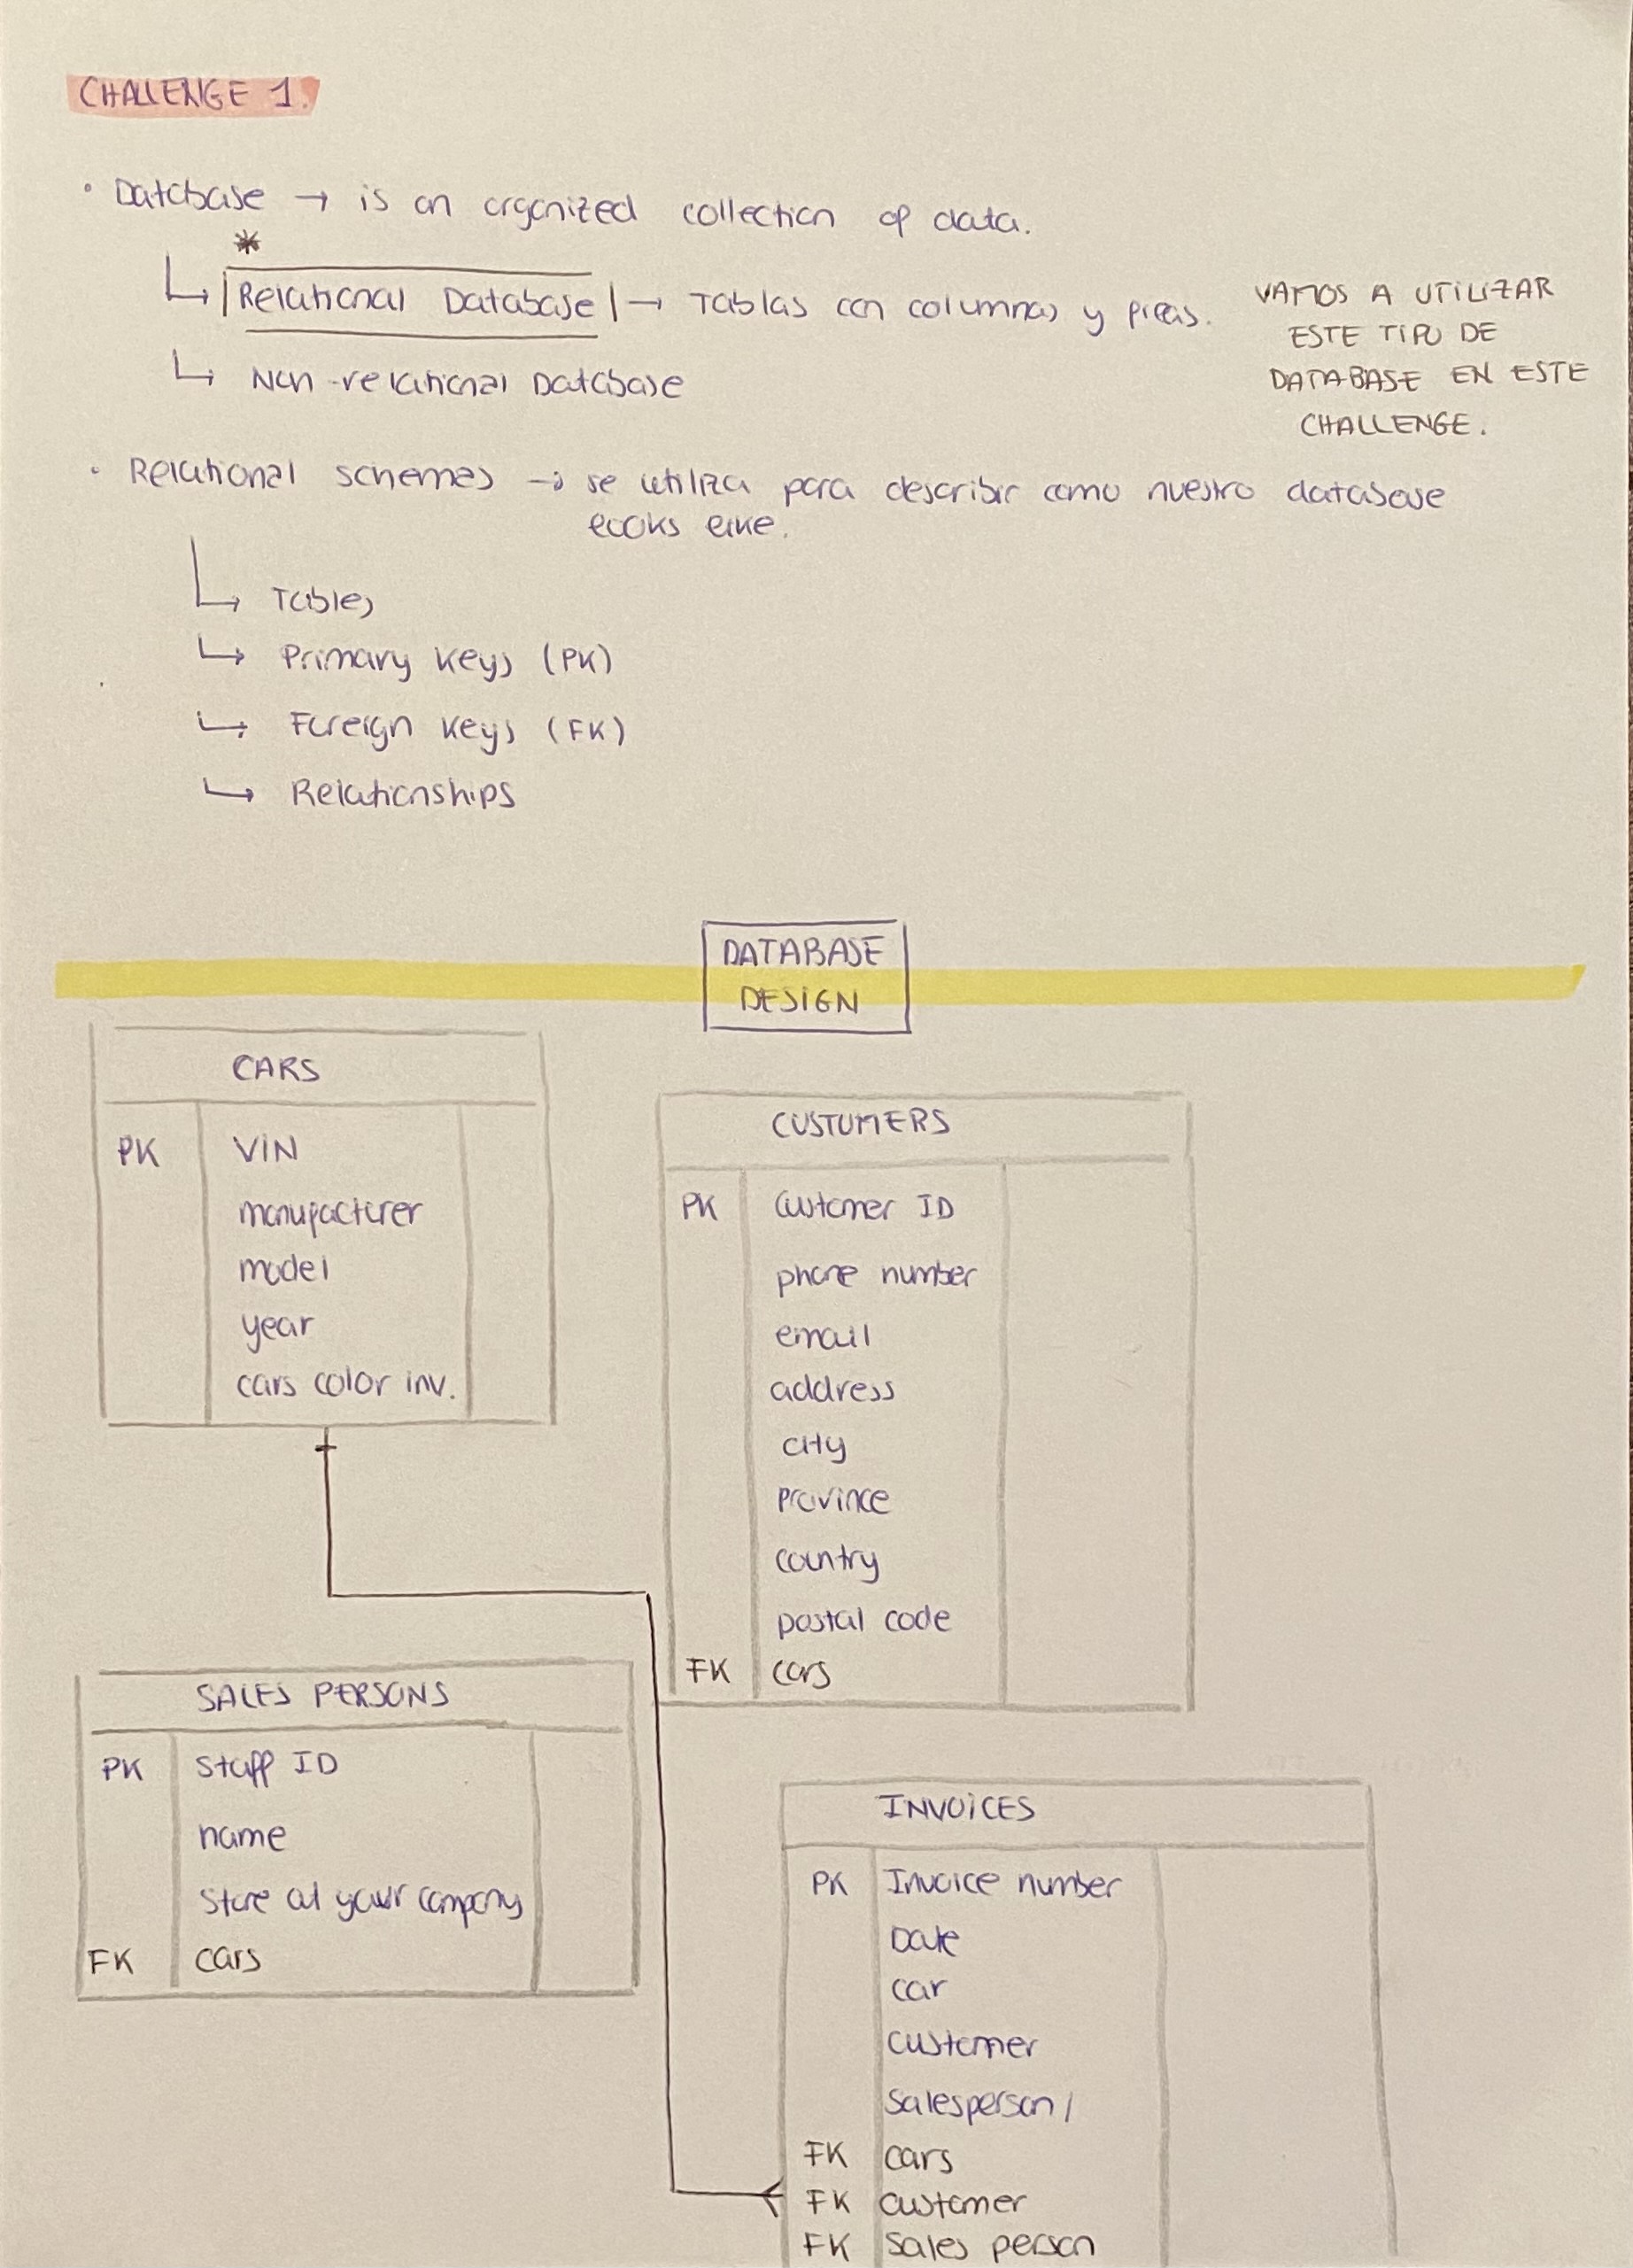 CHALLENGE 1.
• Database → is an organized collection of data.
*
↳ Relational Database → Tablas con columnas y filas.
VAMOS A UTILIZAR
ESTE TIPO DE
DATABASE EN ESTE
CHALLENGE.
↳ Non-relational Database
• Relational schemas → se utiliza para describir como nuestro database
looks like.
↳ Tables
↳ Primary Keys (PK)
↳ Foreign Keys (FK)
↳ Relationships
DATABASE
DESIGN
CARS
PK VIN
manufacturer
model
year
cars color inv.
CUSTOMERS
PK Customer ID
phone number
email
address
city
province
country
postal code
FK cars
SALES PERSONS
PK Staff ID
name
Store at your company
FK cars
INVOICES
PK Invoice number
Date
car
customer
Salesperson /
FK cars
FK customer
FK Sales person